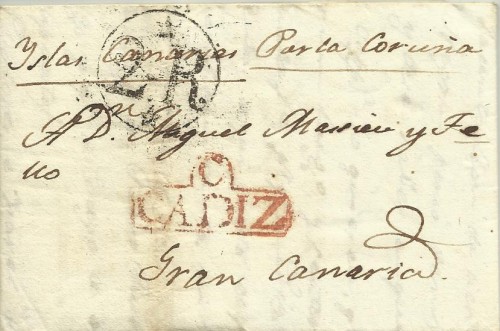 Yslas Canarias Por la Coruña
2R
A D. Miguel Massieu y Fe
llo
C
CADIZ
Gran Canaria